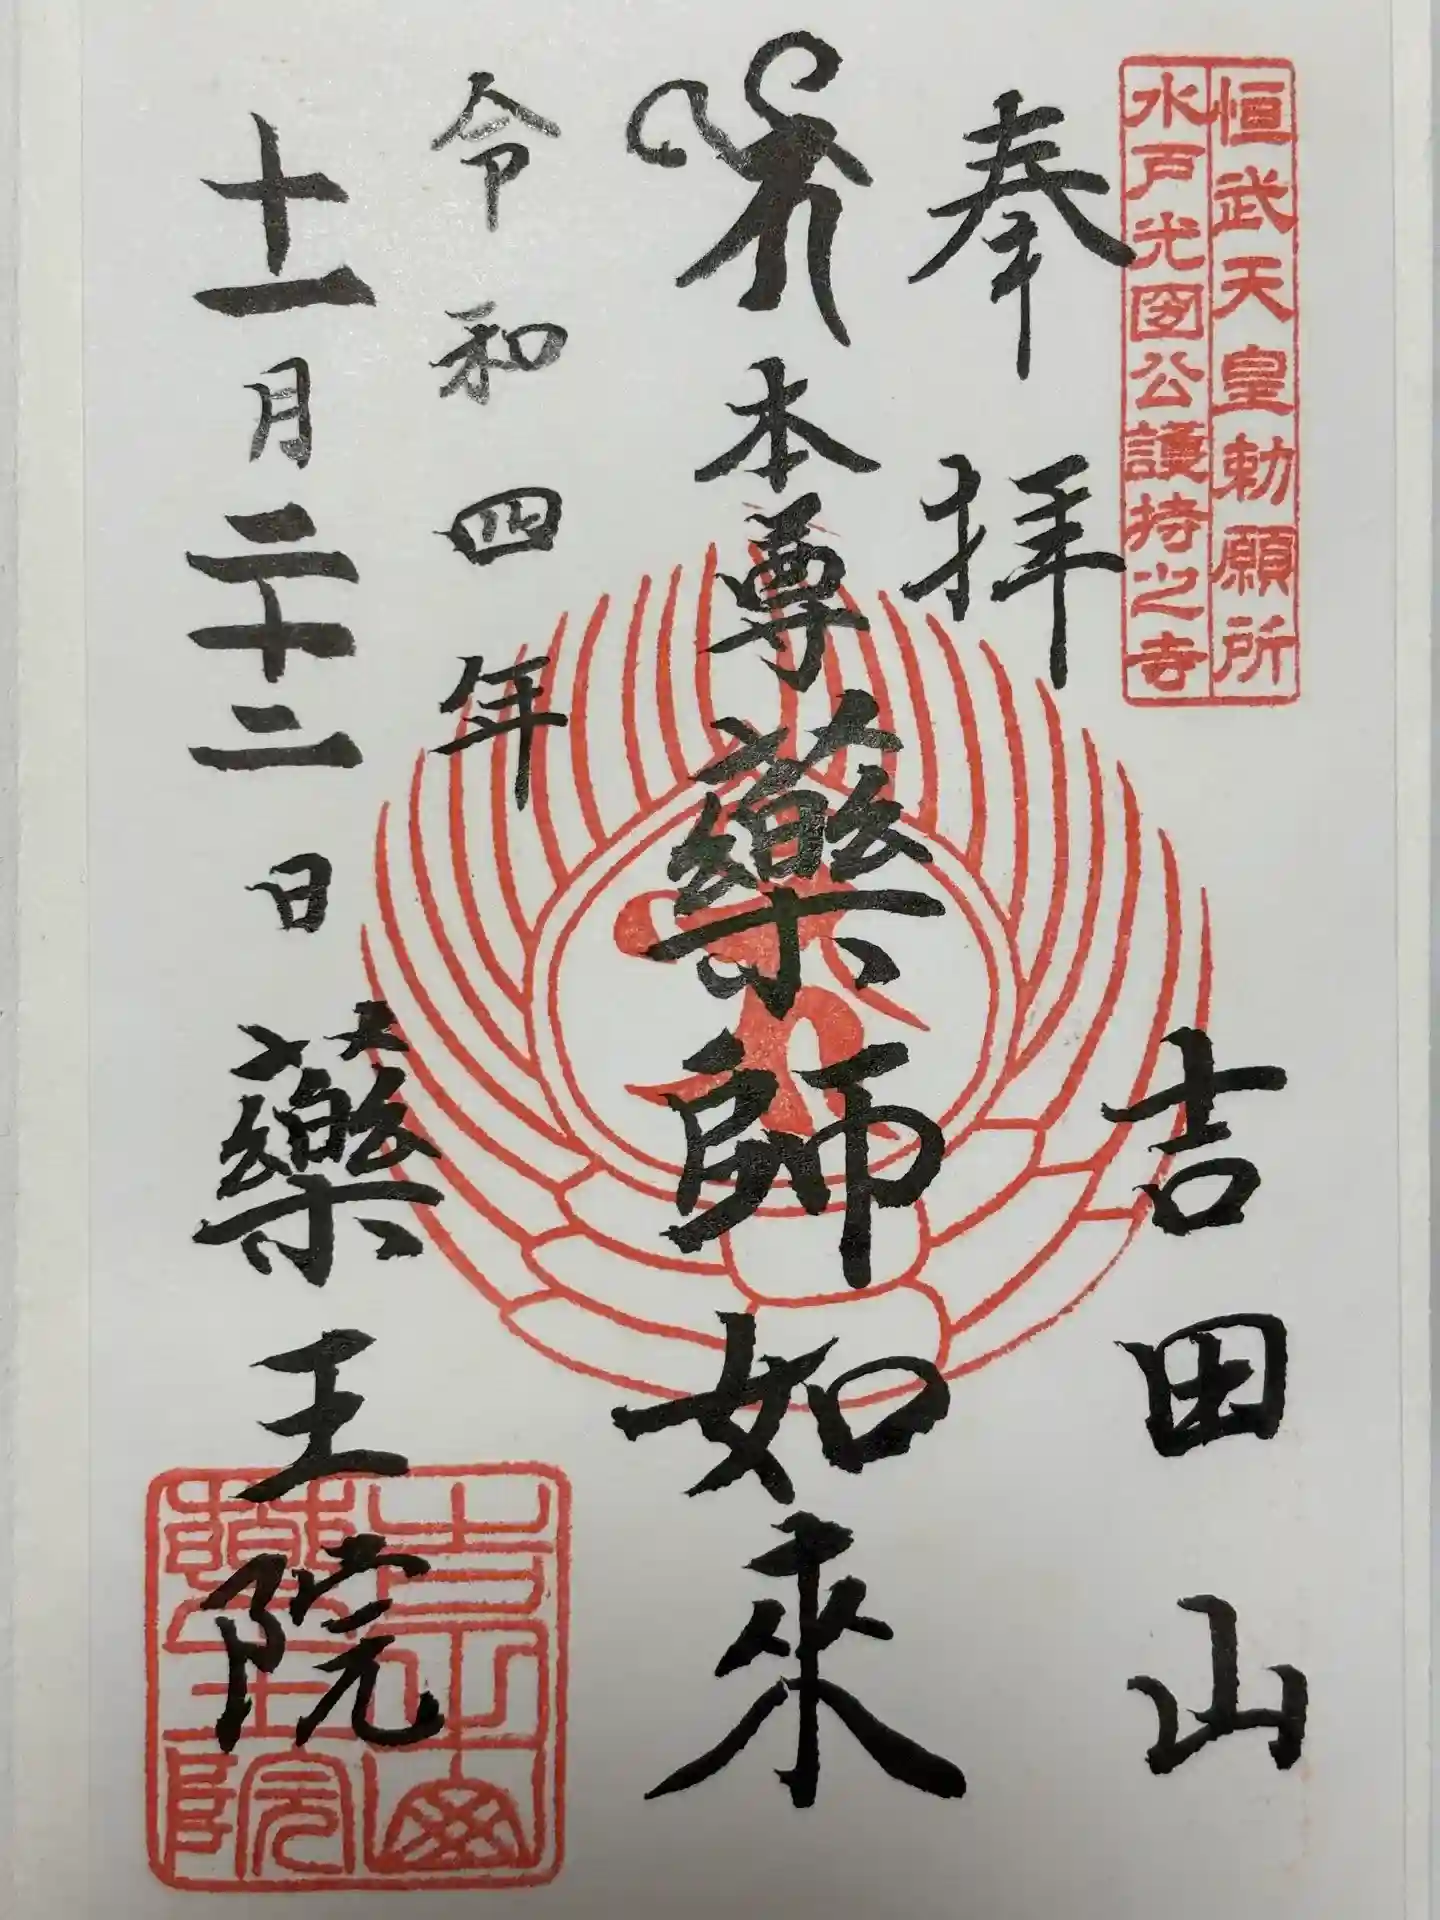 恒武天皇勅願所
水戸光圀公護持之寺
奉拝
吉田山
本尊薬師如来
令和四年
十一月二十二日
薬王院